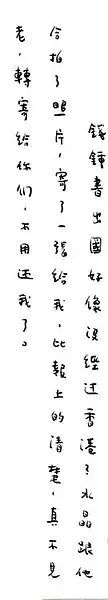 錢鍾書出國好像沒經过香港？水晶跟他
合拍了照片，寄了一張給我，比報上的清楚，真不見
老，轉寄給你们，不用还我了。